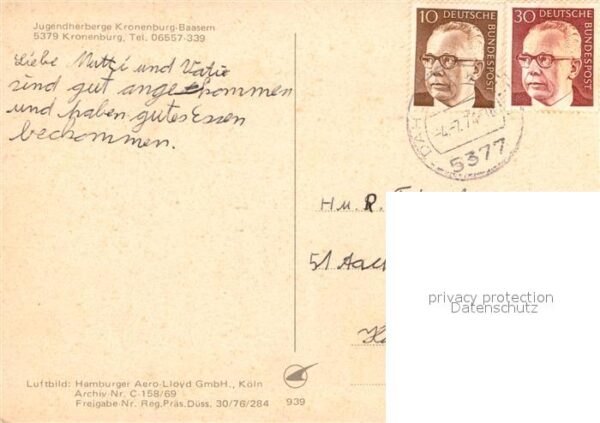 Jugendherberge Kronenburg-Baasem
5379 Kronenburg, Tel. 06557-339
Liebe Mutti und Vatie
sind gut angekommen
und haben gutes Essen
beckommen.
10 DEUTSCHE BUNDESPOST
30 DEUTSCHE BUNDESPOST
-4.-7.74
5377
R.
51 Aach
privacy protection
Datenschutz
Luftbild: Hamburger Aero-Lloyd GmbH., Köln
Archiv-Nr. C-158/69
Freigabe-Nr. Reg.Präs.Düss. 30/76/284
939